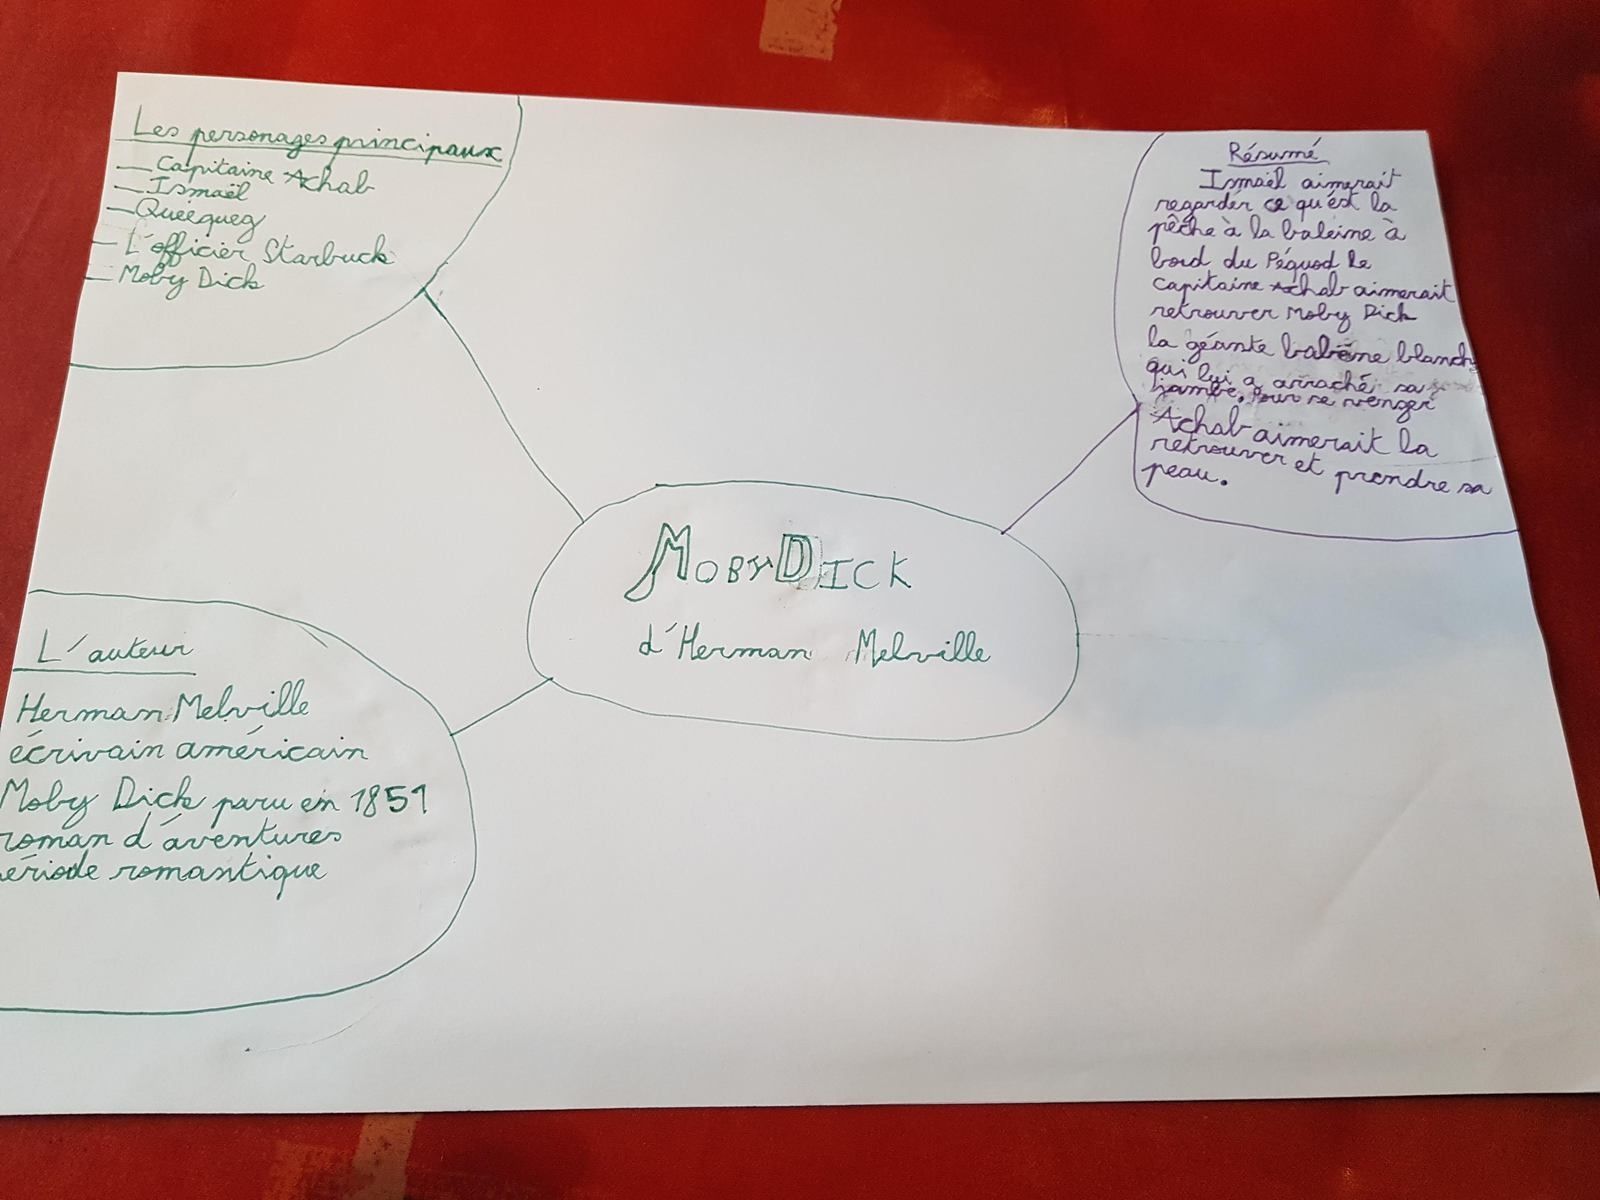 Les personages principaux
— Capitaine Achab
— Ismaël
— Queequeg
— L'officier Starbuck
— Moby Dick
Résumé
Ismaël aimerait
regarder ce qu'est la
pêche à la baleine à
bord du Péquod Le
capitaine Achab aimerait
retrouver Moby Dick
la géante baleine blanch
qui lui a arraché sa
jambe. Pour se venger
Achab aimerait la
retrouver et prendre sa
peau.
Moby Dick
d'Herman Melville
L'auteur
Herman Melville
écrivain américain
Moby Dick paru en 1851
roman d'aventures
ériode romantique